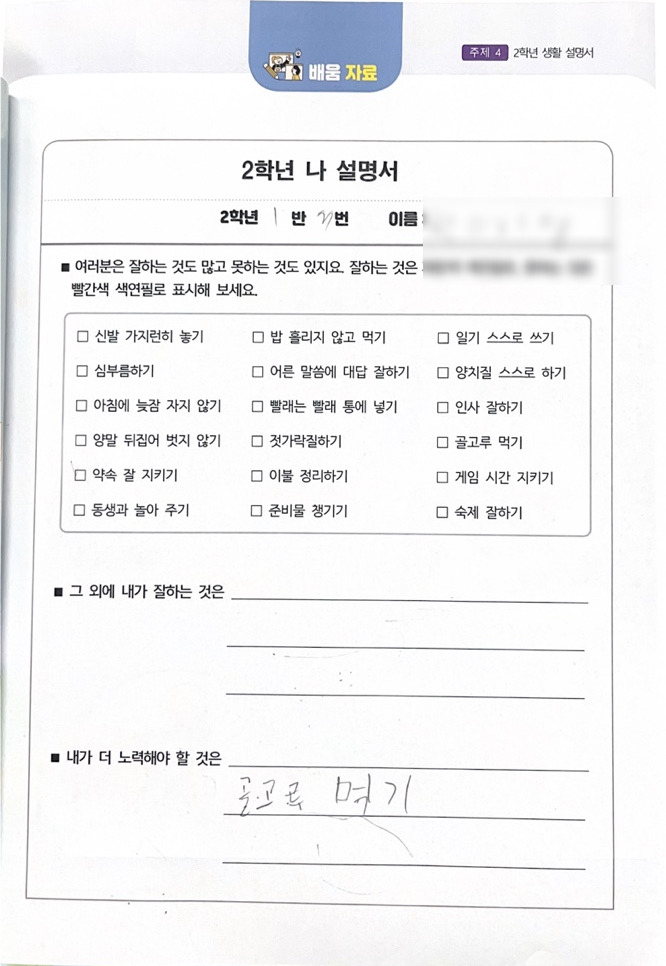 배움 자료
주제 4 2학년 생활 설명서
2학년 나 설명서
2학년 1 반 번 이름
■ 여러분은 잘하는 것도 많고 못하는 것도 있지요. 잘하는 것은
빨간색 색연필로 표시해 보세요.
□ 신발 가지런히 놓기 □ 밥 흘리지 않고 먹기 □ 일기 스스로 쓰기
□ 심부름하기 □ 어른 말씀에 대답 잘하기 □ 양치질 스스로 하기
□ 아침에 늦잠 자지 않기 □ 빨래는 빨래 통에 넣기 □ 인사 잘하기
□ 양말 뒤집어 벗지 않기 □ 젓가락질하기 □ 골고루 먹기
□ 약속 잘 지키기 □ 이불 정리하기 □ 게임 시간 지키기
□ 동생과 놀아 주기 □ 준비물 챙기기 □ 숙제 잘하기
■ 그 외에 내가 잘하는 것은
■ 내가 더 노력해야 할 것은
골고루 먹기